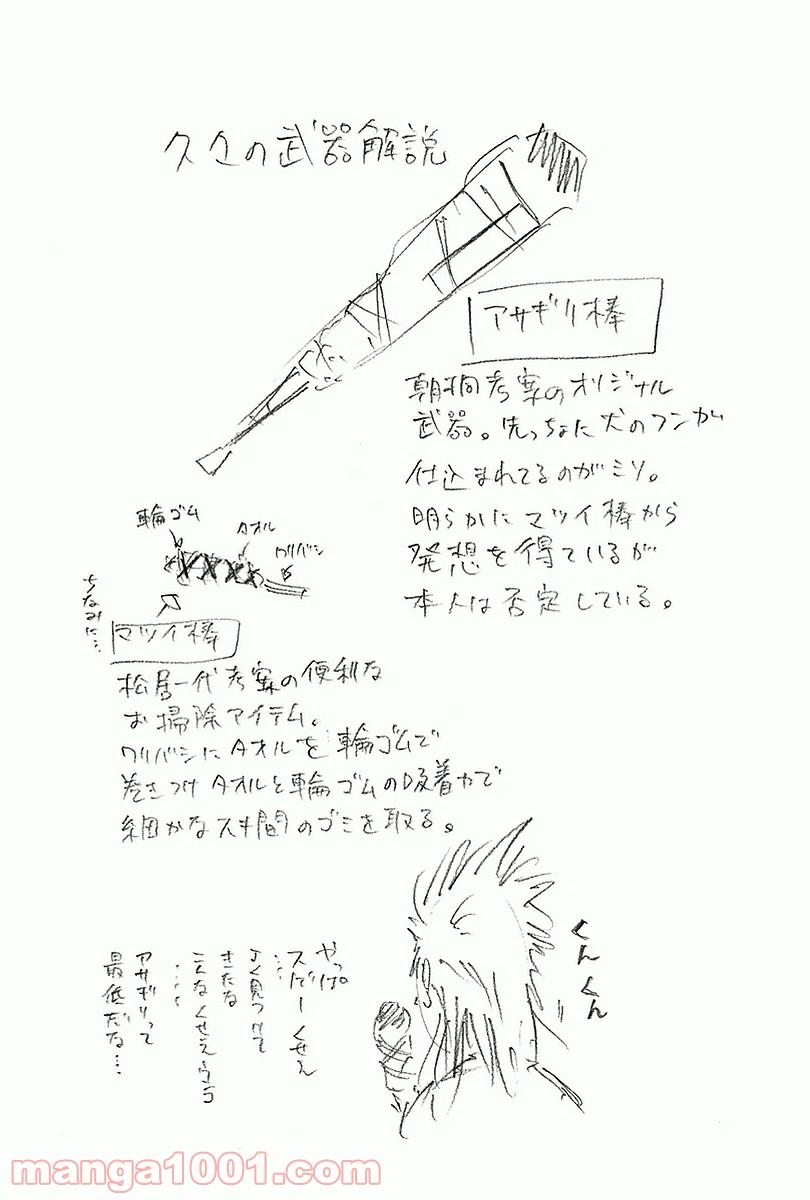 久々の武器解説
アサギリ棒
朝桐考案のオリジナル
武器。先っちょに犬のフンが
仕込まれてるのがミソ。
明らかにマツイ棒から
発想を得ているが
本人は否定している。
輪ゴム
タオル
ワリバシ
ちなみに…
マツイ棒
松居一代考案の便利な
お掃除アイテム。
ワリバシにタオルを輪ゴムで
巻きつけタオルと輪ゴムの吸着力で
細かなスキ間のゴミを取る。
くんくん
やっぱ
スゲーくせえ
……
よく見つけて
きたな
こんなくせえうんこ
……
アサギリって
最低だな…
manga1001.com